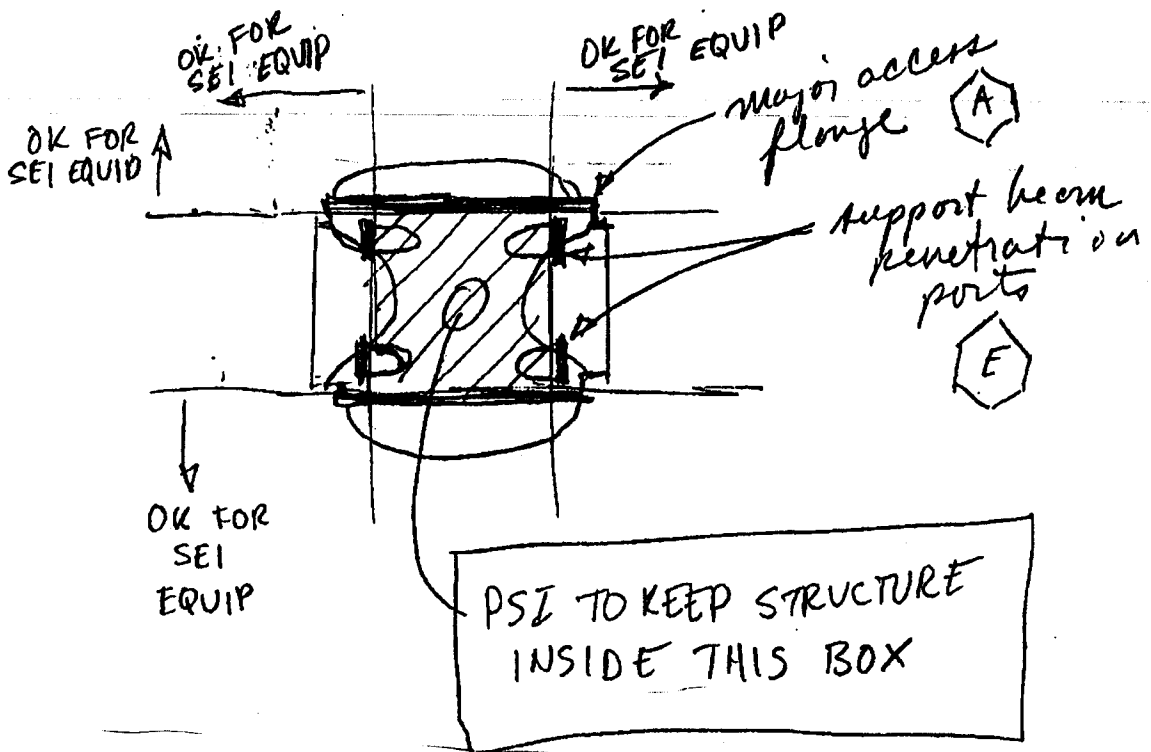 OK FOR
SEI EQUIP
OK FOR
SEI EQUIP
major access
flange
A
OK FOR
SEI EQUIP
support beam
penetration
ports
E
OK FOR
SEI
EQUIP
PSI TO KEEP STRUCTURE
INSIDE THIS BOX